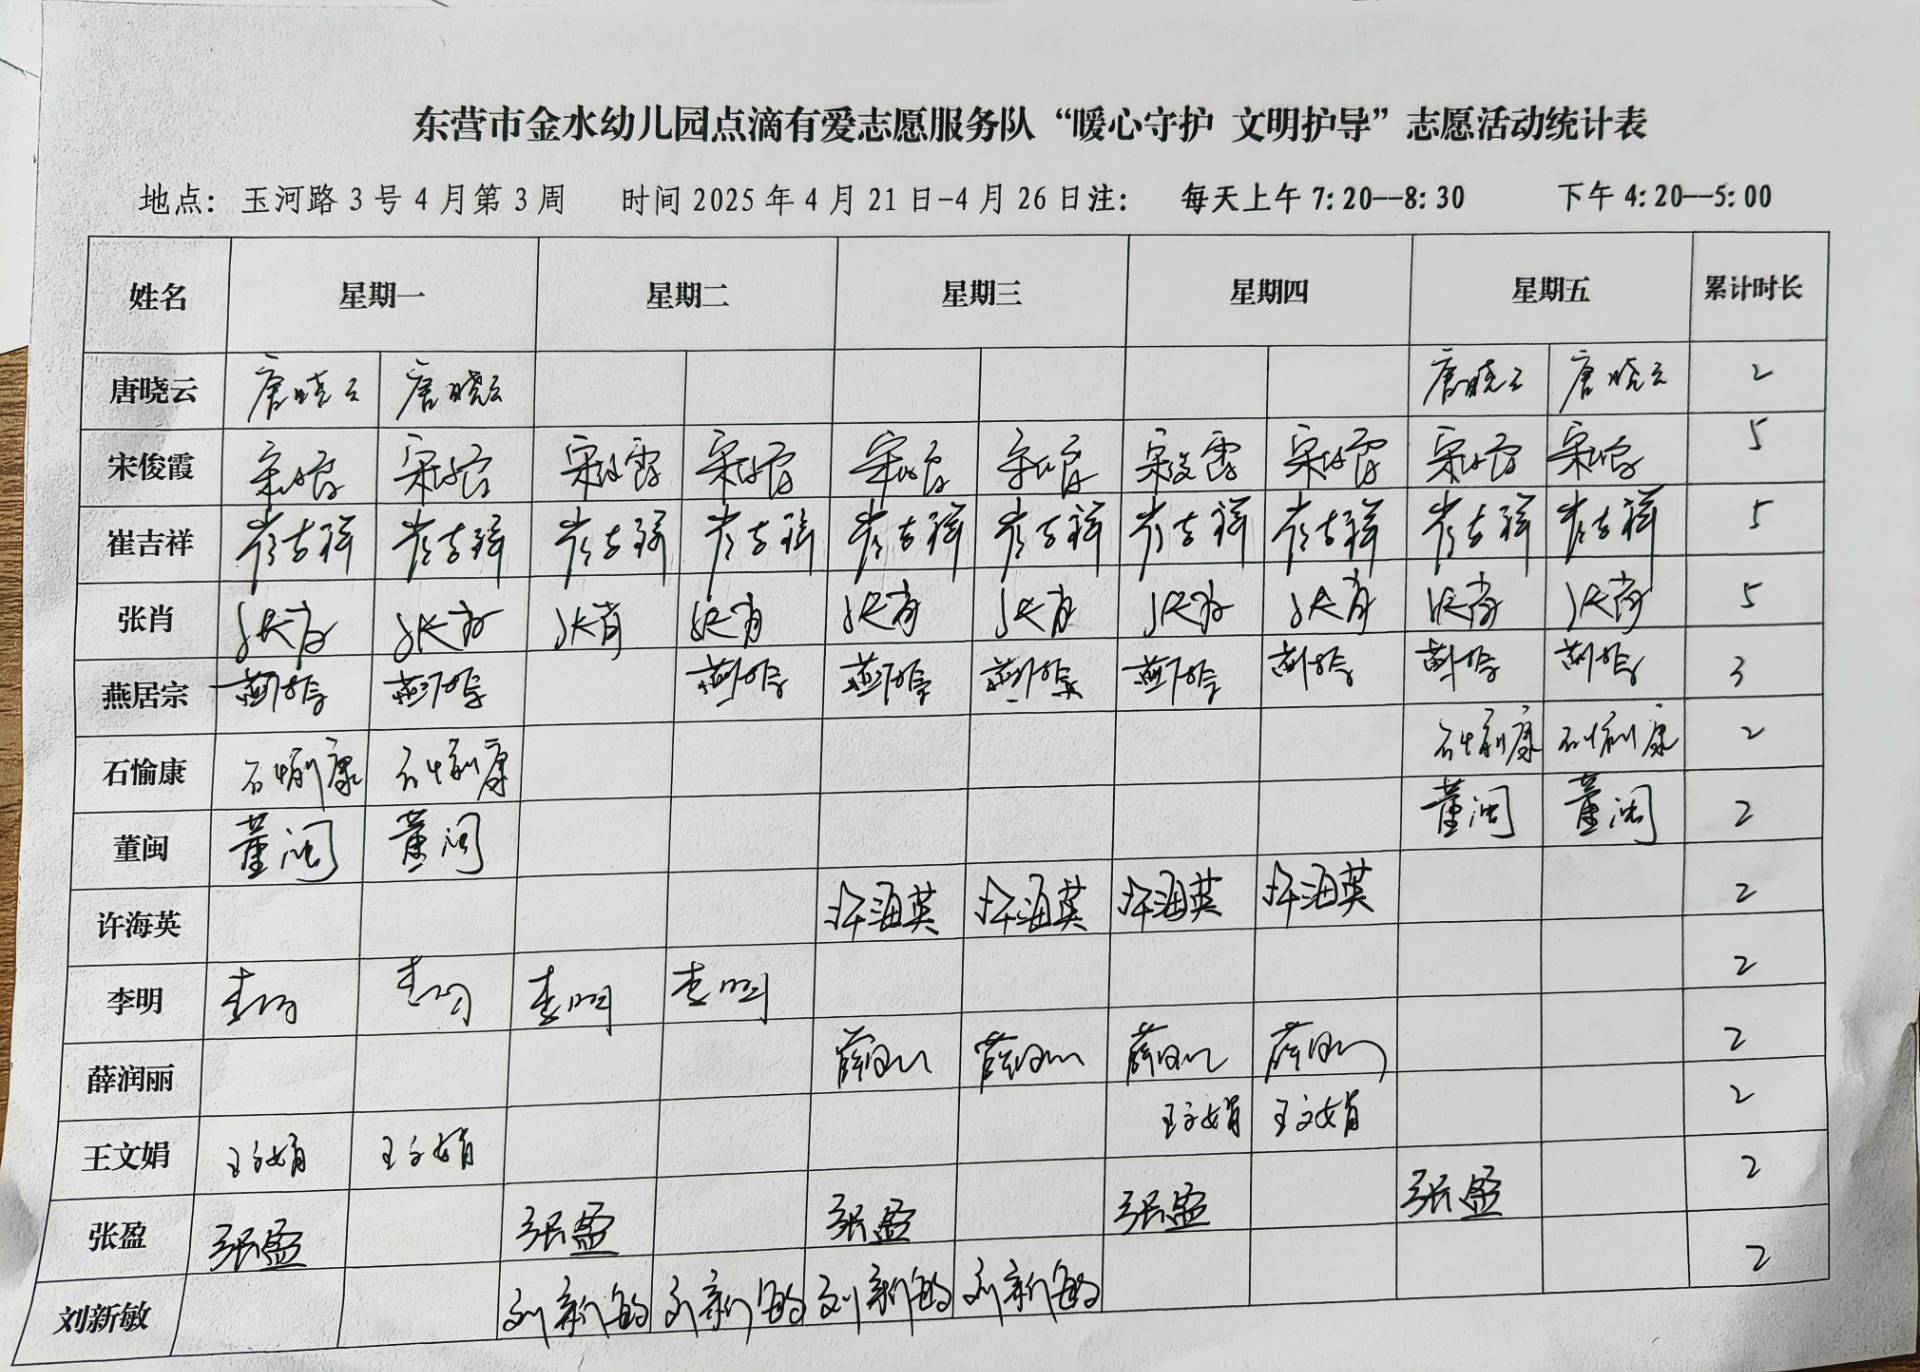 东营市金水幼儿园点滴有爱志愿服务队“暖心守护 文明护导”志愿活动统计表
地点：玉河路3号4月第3周 时间2025年4月21日-4月26日注： 每天上午7:20--8:30 下午4:20--5:00
姓名 星期一 星期二 星期三 星期四 星期五 累计时长
唐晓云 唐晓云 唐晓云 唐晓云 唐晓云 2
宋俊霞 宋俊霞 宋俊霞 宋俊霞 宋俊霞 宋俊霞 宋俊霞 宋俊霞 宋俊霞 宋俊霞 宋俊霞 5
崔吉祥 崔吉祥 崔吉祥 崔吉祥 崔吉祥 崔吉祥 崔吉祥 崔吉祥 崔吉祥 崔吉祥 崔吉祥 5
张肖 张肖 张肖 张肖 张肖 张肖 张肖 张肖 张肖 张肖 张肖 5
燕居宗 燕居宗 燕居宗 燕居宗 燕居宗 燕居宗 燕居宗 燕居宗 燕居宗 燕居宗 3
石愉康 石愉康 石愉康 石愉康 石愉康 2
董闽 董闽 董闽 董闽 董闽 2
许海英 许海英 许海英 许海英 许海英 2
李明 李明 李明 李明 李明 2
薛润丽 薛润丽 薛润丽 薛润丽 薛润丽 2
王文娟 王文娟 王文娟 王文娟 王文娟 2
张盈 张盈 张盈 张盈 张盈 张盈 2
刘新敏 刘新敏 刘新敏 刘新敏 刘新敏 2